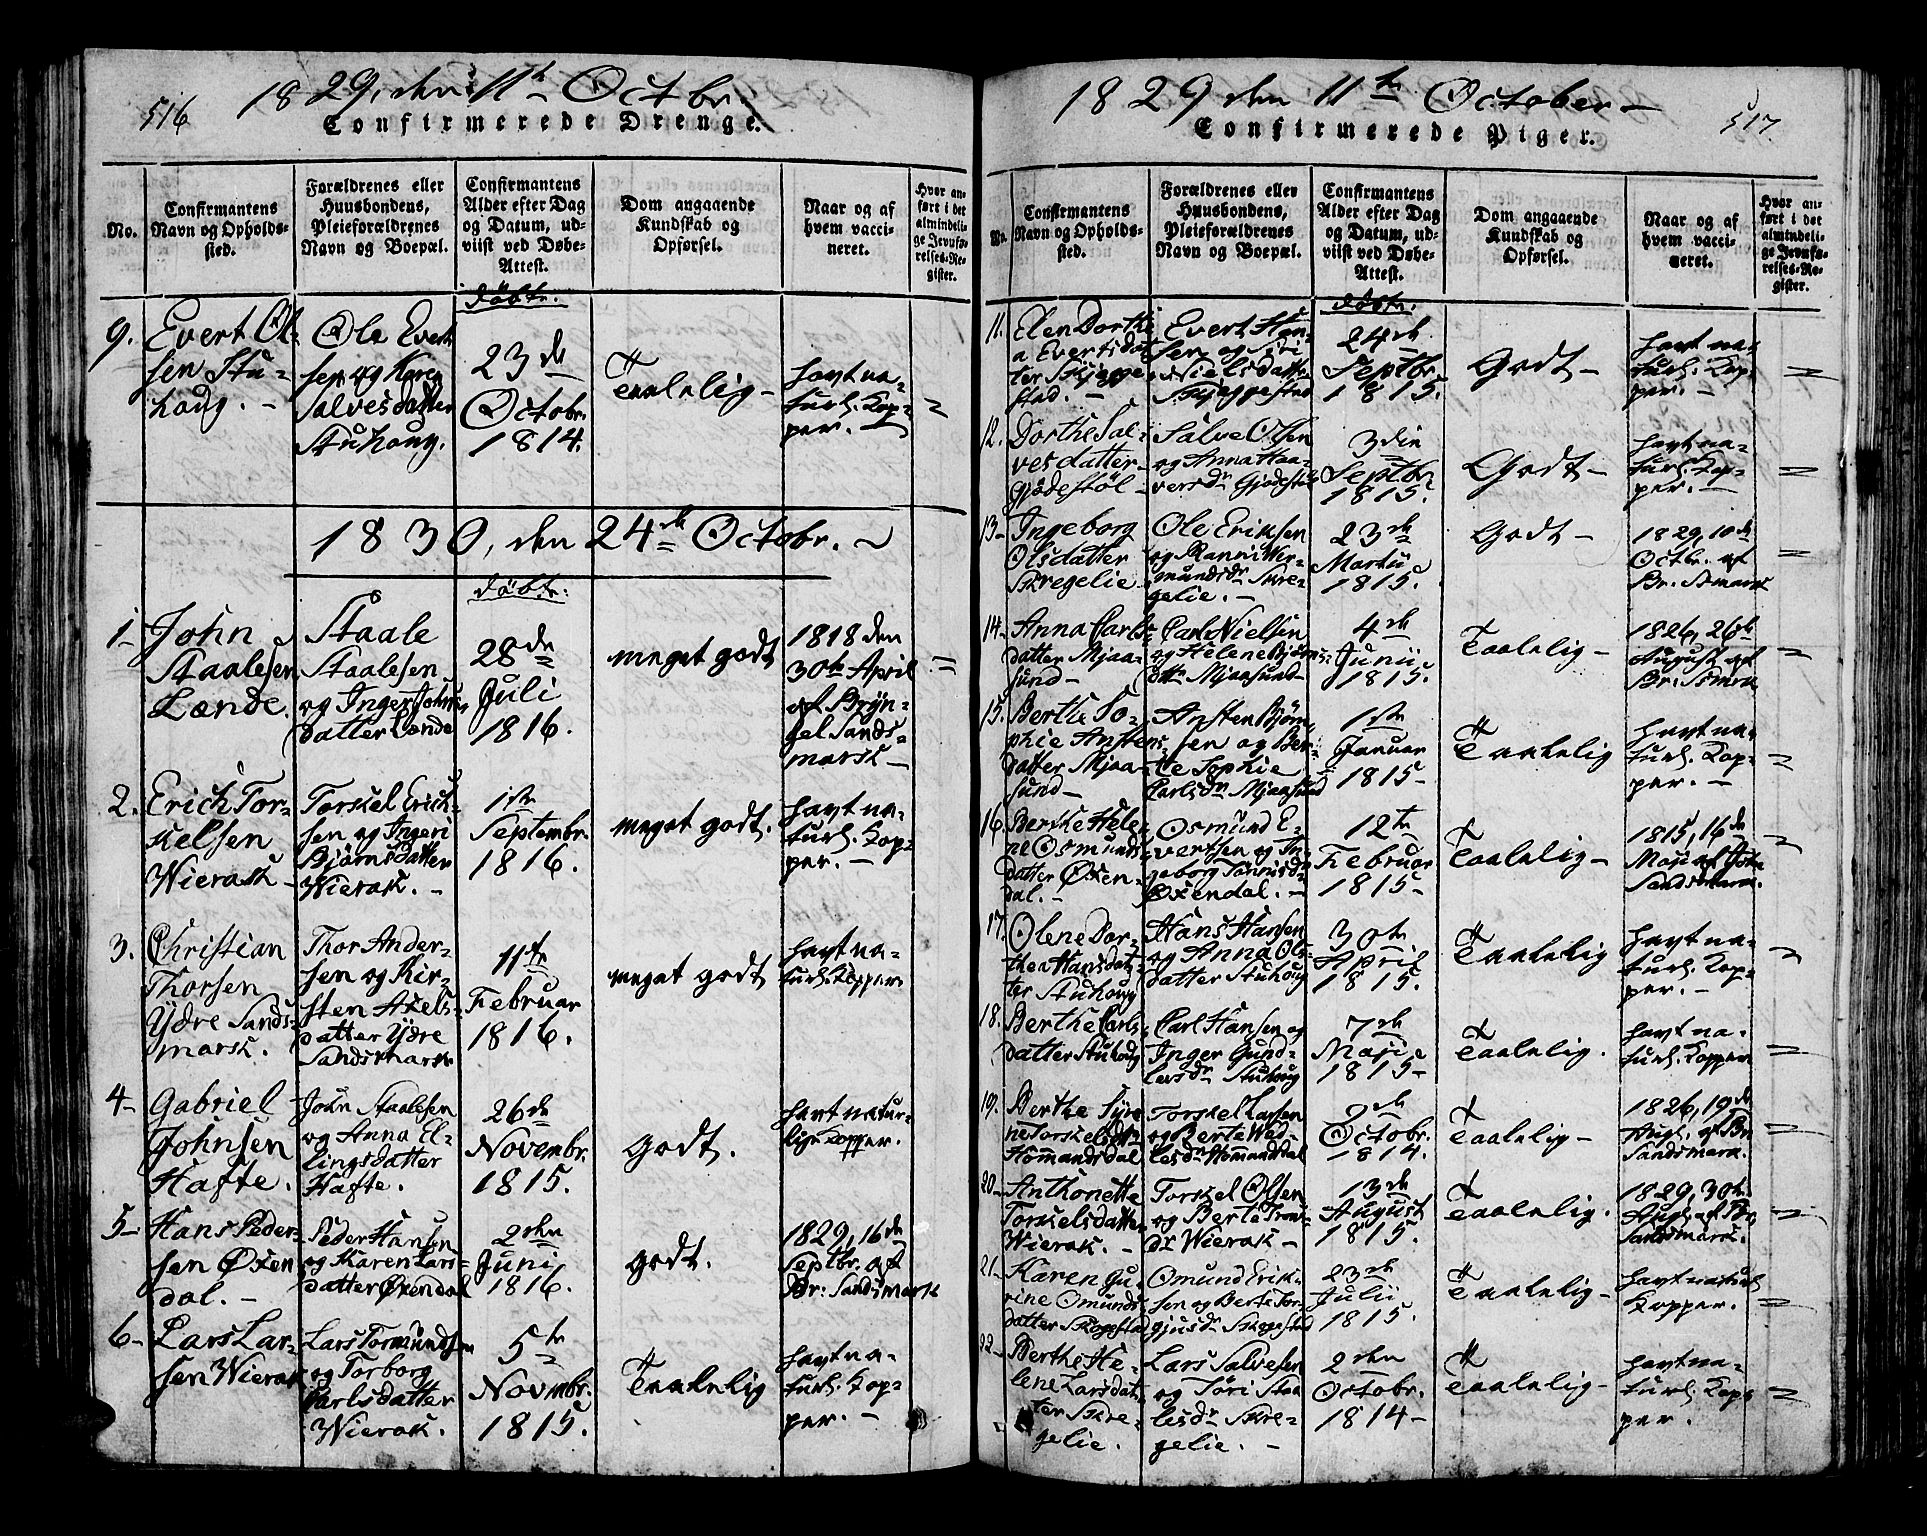 516
1829, den 11te Octbr.
Confirmerede Drenge.
No.
Confirmantens
Navn og Opholds-
sted.
Forældrenes eller
Huusbondens,
Pleieforældrenes
Navn og Boepæl.
Confirmantens
Alder efter Dag
og Datum, ud-
viist ved Døbe-
Attest.
Dom angaaende
Kundskab og
Opførsel.
Naar og af
hvem vacci-
neret.
Hvor an-
ført i det
almindeli-
ge Jevnfø-
relses-Re-
gister.
døbt:
9.
Evert Ol-
sen Stu-
houg. -
Ole Evert-
sen og Karen
Salvesdatter
Stuhoug.
23de
Octobr.
1814.
Taalelig -
havt na-
turl. Kop-
per. -
1830, den 24de Octobr.
døbt:
1-
John
Staalesen
Lænde.
Staale
Staalesen
og Inger Johns-
datter Lænde
28de
Juli
1816.
meget godt
1818 den
30te April
af Bryn-
gel Sands-
mark -
2.
Erich Tor-
kelsen
Wierak -
Torkel Erich-
sen og Ingeri
Bjørnsdatter
Wierak. -
1ste
Septembr.
1816.
meget godt.
havt na-
turl. Kop-
per. -
3.
Christian
Thorsen
Ydre Sands-
mark.
Thor Ander-
sen og Kir-
sten Axels-
datter Ydre
Sandsmark
11te
Februar
1816.
meget godt
havt na-
turl. Kopper.
4-
Gabriel
Johnsen
Hafte.
John Staalesen
og Anna El-
lingsdatter
Hafte.
26de
Novembr.
1815.
godt.
havt natur-
lige Kopper.
5-
Hans Peder-
sen Øxen
dal. -
Peder Hansen
og Karen Lars-
datter Øxendal
2den
Juni
1816.
godt.
1829, 16de
Septbr. af
Br: Sandsmark
6-
Lars Lar-
sen Wierak
Lars Tormundsen
og Torborg
Carlsdatter
Wierak.
5te
Novembr.
1815.
Taalelig
havt na-
turl. Kop-
per. -
1829 den 11te October -
517.
Confirmerede Piger.
No.
Confirmantens
Navn og Opholds-
sted.
Forældrenes eller
Huusbondens,
Pleieforældrenes
Navn og Boepæl.
Confirmantens
Alder efter Dag
og Datum, ud-
viist ved Døbe-
Attest.
Dom angaaende
Kundskab og
Opførsel.
Naar og af
hvem vacci-
neret.
Hvor an-
ført i det
almindeli-
ge Jevnfø-
relses-Re-
gister.
døbt:
11.
Elen Dorthe
a Evertsdat-
ter Skjegge-
stad. -
Evert Han-
sen og Siri
Nielsdatter
Skjeggestad
24de
Septbr.
1815.
Godt -
havt na-
turl. Kop-
per. -
12.
Dorthe Sal-
vesdatter
Gjødestøl -
Salve Olsen
og Anna Haa-
versdr Gjødestøl
3die
Septbr.
1815.
Godt -
havt na-
turl. Kop-
per. -
13-
Ingeborg
Olsdatter
Skregelie -
Ole Eriksen
og Ranni Wer-
mundsdr Skre-
gelie. -
23de
Martii
1815.
Godt -
1829, 10de
Octbr. af
Br. Smark
14-
Anna Carls-
datter Mjaa-
sund -
Carl Nielsen
og Helene Bjørns-
dtr Mjaasund -
4de
Junii
1815.
Taalelig -
1826, 26de
August af
Br: Smark
15.
Berthe So-
phie Anstens-
datter Mjaa-
sund -
Ansten Bjørn-
sen og Ber-
te Sophie
Carlsdr Mjaasund
1ste
Januar
1815 -
Taalelig
havt na-
turl. Kop-
per. -
16.
Berthe Hele
ne Osmunds-
datter Øxen-
dal. -
Osmund E-
vertsen og In-
geborg Tønnisd-
Øxendal. -
12te
Februar
1815 -
Taalelig -
1815, 16de
Maji af John
Sandsmark.
17.
Olene Dor-
thea Hansdat-
ter Stuhoug
Hans Hansen
og Anna Ols-
datter Stuhoug
30te
April
1815.
Taalelig
havt na-
turl. Kop-
per. -
18.
Berthe Carls
datter Stuhoug
Carl Hansen og
Inger Gund-
lersdr Stuhoug
7de
Maji
1815 -
Taalelig.
havt na-
turl. Kopper
19.
Berthe Syre
ne Torkelsdtr
Hommandsdal
Torkel Larsen
og Berte Wed-
lesdr Hommandsdal
Octobr.
1814.
Taalelig -
1826, 19de
Augl. af Br.
Sandsmark.
20-
Anthonette
Torkelsdatter
Wierak. -
Torkel Olsen
og Berte Trons
dr Wierak -
13de
August
1815.
Taalelig.
1829, 30te
Augl. af Br.
Sandsmark.
21-
Karen Gu-
rine Omunds
datter Skogestad
Omund Erik-
sen og Berte Tor-
gjusdr Skogestad
23de
Julii
1815.
Taalelig -
havt naturl.
Kopper. -
22-
Berthe He-
lene Larsdat-
ter Skre-
gelie.
Lars Salvesen
og Tøri Staa
lesdr Skre-
gelie. -
2den
Octobr.
1814 -
Taalelig -
havt na-
turl. Kop-
per.